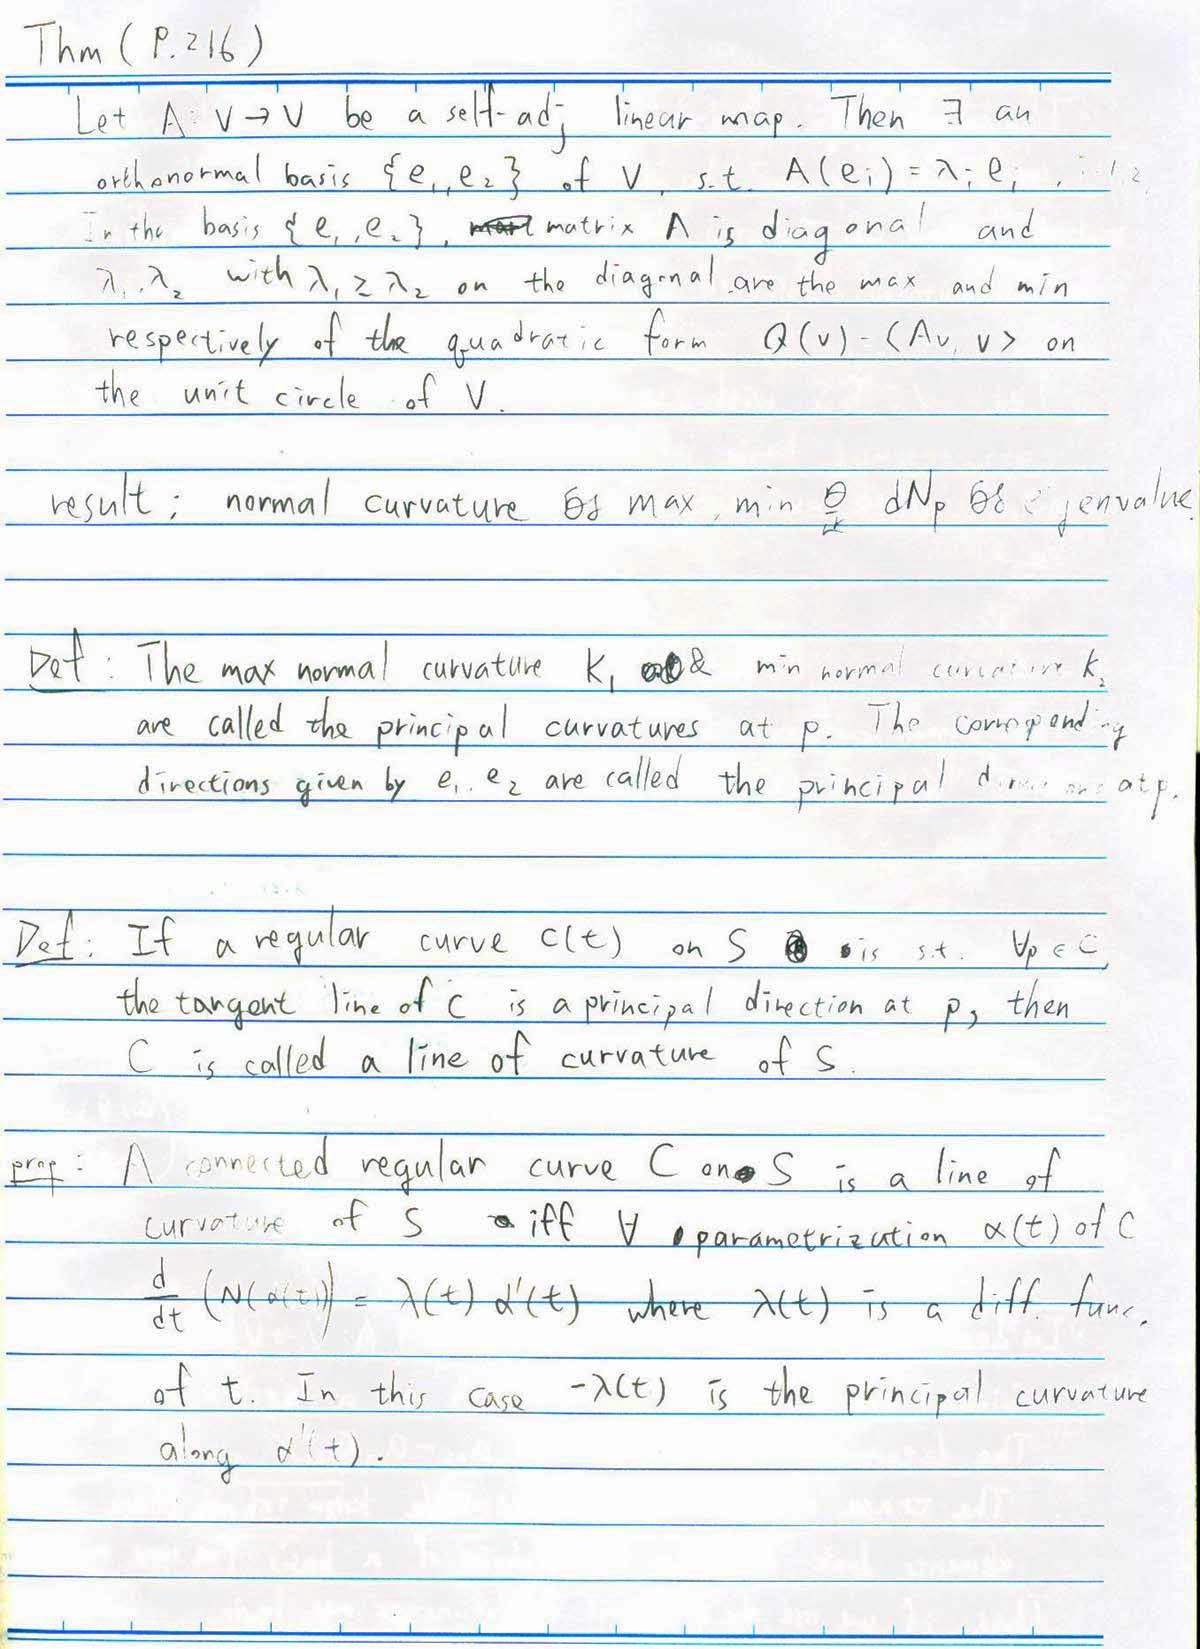 Thm ( P. 216 )
Let A: V → V be a self-adj linear map. Then ∃ an
orthonormal basis {e₁, e₂} of V, s.t. A(eᵢ) = λᵢ eᵢ , i=1,2
In the basis {e₁, e₂}, matrix A is diagonal and
λ₁, λ₂ with λ₁ ≥ λ₂ on the diagonal are the max and min
respectively of the quadratic form Q(v) = <Av, v> on
the unit circle of V.
result : normal curvature max, min dNp eigenvalue.
Def : The max normal curvature k₁ & min normal curvature k₂
are called the principal curvatures at p. The corresponding
directions given by e₁, e₂ are called the principal directions at p.
Def : If a regular curve C(t) on S is s.t. ∀p ∈ C,
the tangent line of C is a principal direction at p, then
C is called a line of curvature of S.
prop : A connected regular curve C on S is a line of
curvature of S iff ∀ parametrization α(t) of C
d/dt (N(α(t))) = λ(t) α'(t) where λ(t) is a diff. func.
of t. In this case -λ(t) is the principal curvature
along α'(t).